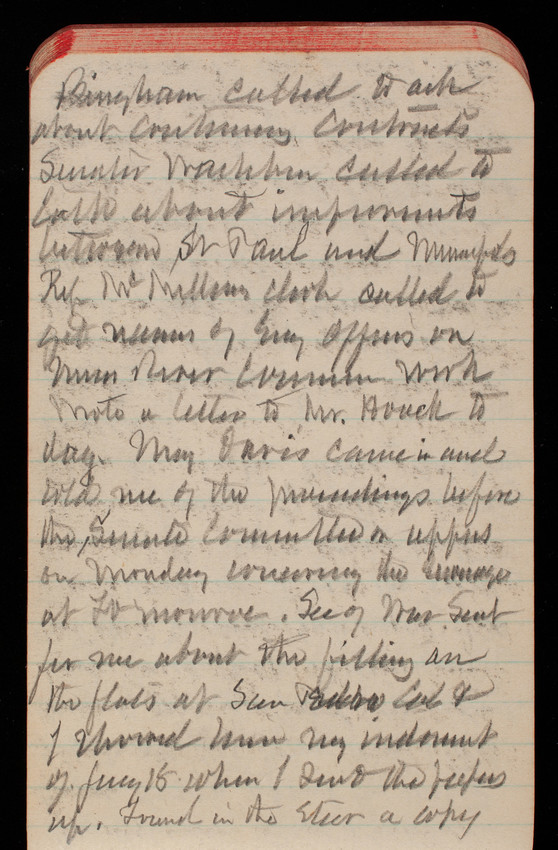 Bingham called to ask
about Continuing Contracts
Senator Washburn called to
talk about improvments
between St Paul and Minneapols
Rep. McMillans clerk called to
get names of Eng officers on
Miss River Commission work
Wrote a letter to Mr. Houck to
day. Maj Davis came in and
told me of the proceedings before
the Senate Committee on apprs
on Monday concerning the sewerage
at Ft Monroe. Sec of War Sent
for me about the filling on
the flats at San Cal &
I showed him my indorsment
of Jany 15 when I send the papers
up. Found in the a copy